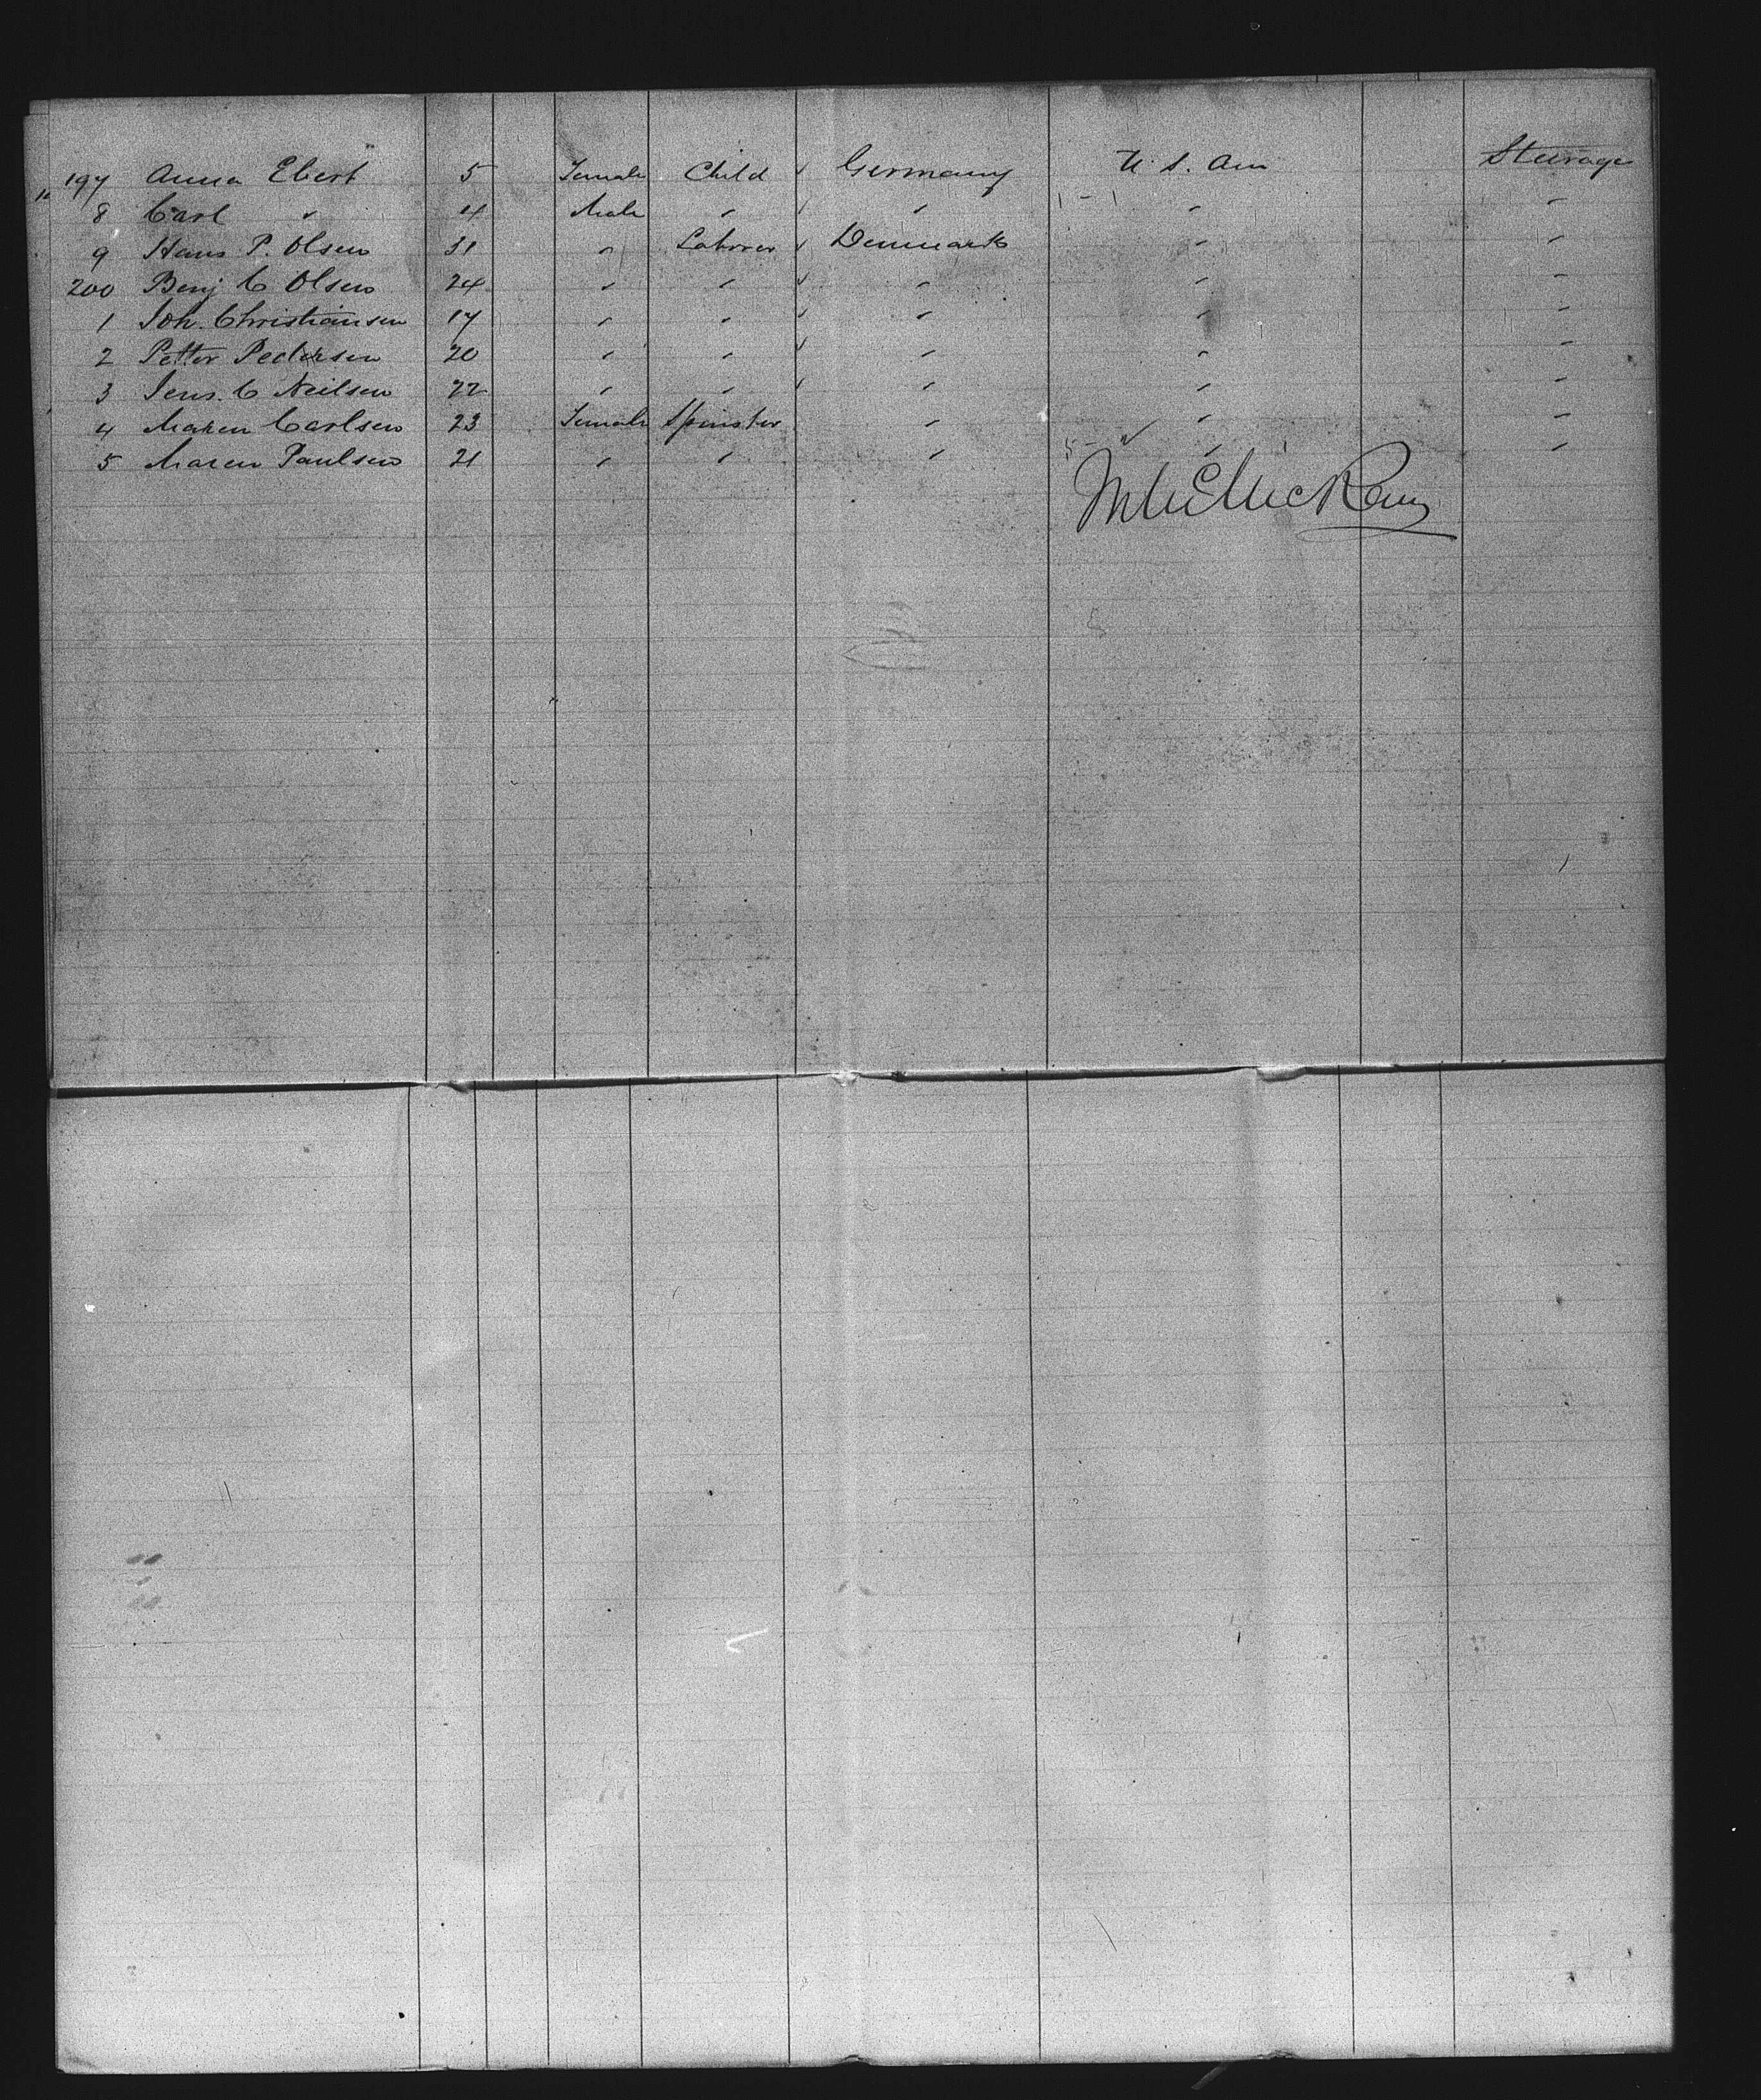 197 Anna Ebert 5 Female Child Germany U. S. Am Steerage
8 Carl " 4 Male " " " "
9 Hans P. Olsen 31 " Laborer Denmark " "
200 Benj C Olsen 24 " " " " "
1 Joh. Christiansen 17 " " " " "
2 Petter Pedersen 20 " " " " "
3 Jens. C Neilsen 22 " " " " "
4 Maren Carlsen 23 Female Spinster " " "
5 Maren Paulsen 21 " " " " "